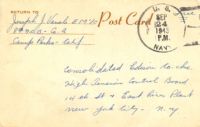 RETURN TO
Joseph J.
Post Card
Camp Parks - Calif
U. S.
SEP
24
1943
P.M.
NAVY
Consolidated Edison Co. Inc
High Tension Control Board
14th St & East River Plant
New York City - N.Y